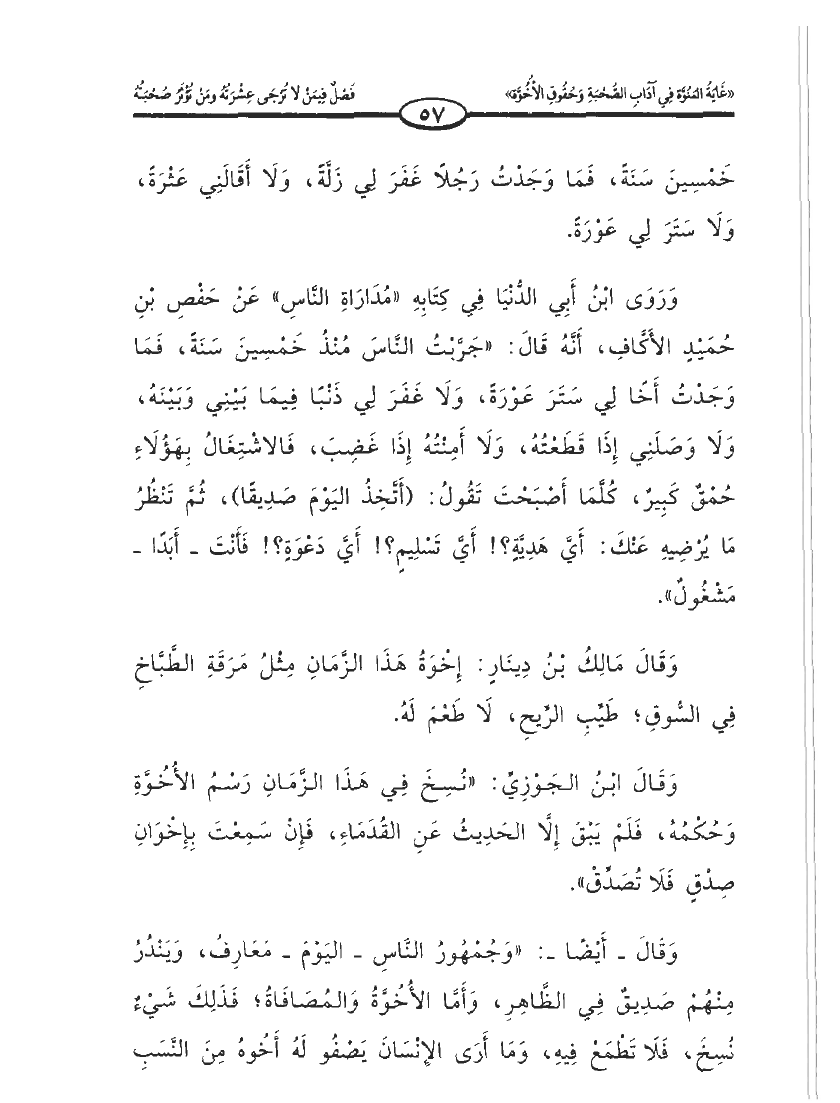 «غَايَةُ المُنُوَّة فِي آدَابِ الصُّحْبَةِ وَحُقُوقِ الأُخُوَّة» فَصْلٌ فِيمَنْ لا تُرْجَى عِشْرَتُهُ ومَنْ تُؤْثَرُ صُحْبَتُهُ
٥٧
خَمْسِينَ سَنَةً، فَمَا وَجَدْتُ رَجُلًا غَفَرَ لِي زَلَّةً، وَلَا أَقَالَنِي عَثْرَةً،
وَلَا سَتَرَ لِي عَوْرَةً.
وَرَوَى ابْنُ أَبِي الدُّنْيَا فِي كِتَابِهِ «مُدَارَاةِ النَّاسِ» عَنْ حَفْصِ بْنِ
حُمَيْدٍ الأَكَّافِ، أَنَّهُ قَالَ: «جَرَّبْتُ النَّاسَ مُنْذُ خَمْسِينَ سَنَةً، فَمَا
وَجَدْتُ أَخًا لِي سَتَرَ عَوْرَةً، وَلَا غَفَرَ لِي ذَنْبًا فِيمَا بَيْنِي وَبَيْنَهُ،
وَلَا وَصَلَنِي إِذَا قَطَعْتُهُ، وَلَا أَمِنْتُهُ إِذَا غَضِبَ، فَالاشْتِغَالُ بِهَؤُلَاءِ
حُمْقٌ كَبِيرٌ، كُلَّمَا أَصْبَحْتَ تَقُولُ: (أَتَّخِذُ اليَوْمَ صَدِيقًا)، ثُمَّ تَنْظُرُ
مَا يُرْضِيهِ عَنْكَ: أَيَّ هَدِيَّةٍ؟! أَيَّ تَسْلِيمٍ؟! أَيَّ دَعْوَةٍ؟! فَأَنْتَ ـ أَبَدًا ـ
مَشْغُولٌ».
وَقَالَ مَالِكُ بْنُ دِينَارٍ: إِخْوَةُ هَذَا الزَّمَانِ مِثْلُ مَرَقَةِ الطَّبَّاخِ
فِي السُّوقِ؛ طَيِّبِ الرِّيحِ، لَا طَعْمَ لَهُ.
وَقَالَ ابْنُ الجَوْزِيِّ: «نُسِخَ فِي هَذَا الزَّمَانِ رَسْمُ الأُخُوَّةِ
وَحُكْمُهُ، فَلَمْ يَبْقَ إِلَّا الحَدِيثُ عَنِ القُدَمَاءِ، فَإِنْ سَمِعْتَ بِإِخْوَانِ
صِدْقٍ فَلَا تُصَدِّقْ».
وَقَالَ ـ أَيْضًا ـ: «وَجُمْهُورُ النَّاسِ ـ اليَوْمَ ـ مَعَارِفُ، وَيَنْدُرُ
مِنْهُمْ صَدِيقٌ فِي الظَّاهِرِ، وَأَمَّا الأُخُوَّةُ وَالمُصَافَاةُ؛ فَذَلِكَ شَيْءٌ
نُسِخَ، فَلَا تَطْمَعْ فِيهِ، وَمَا أَرَى الإِنْسَانَ يَصْفُو لَهُ أَخُوهُ مِنَ النَّسَبِ